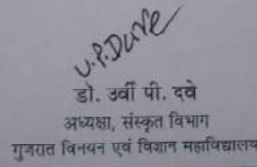 U.P.Dave
डॉ. उर्वी पी. दवे
अध्यक्षा, संस्कृत विभाग
गुजरात विनयन एवं विज्ञान महाविद्यालय